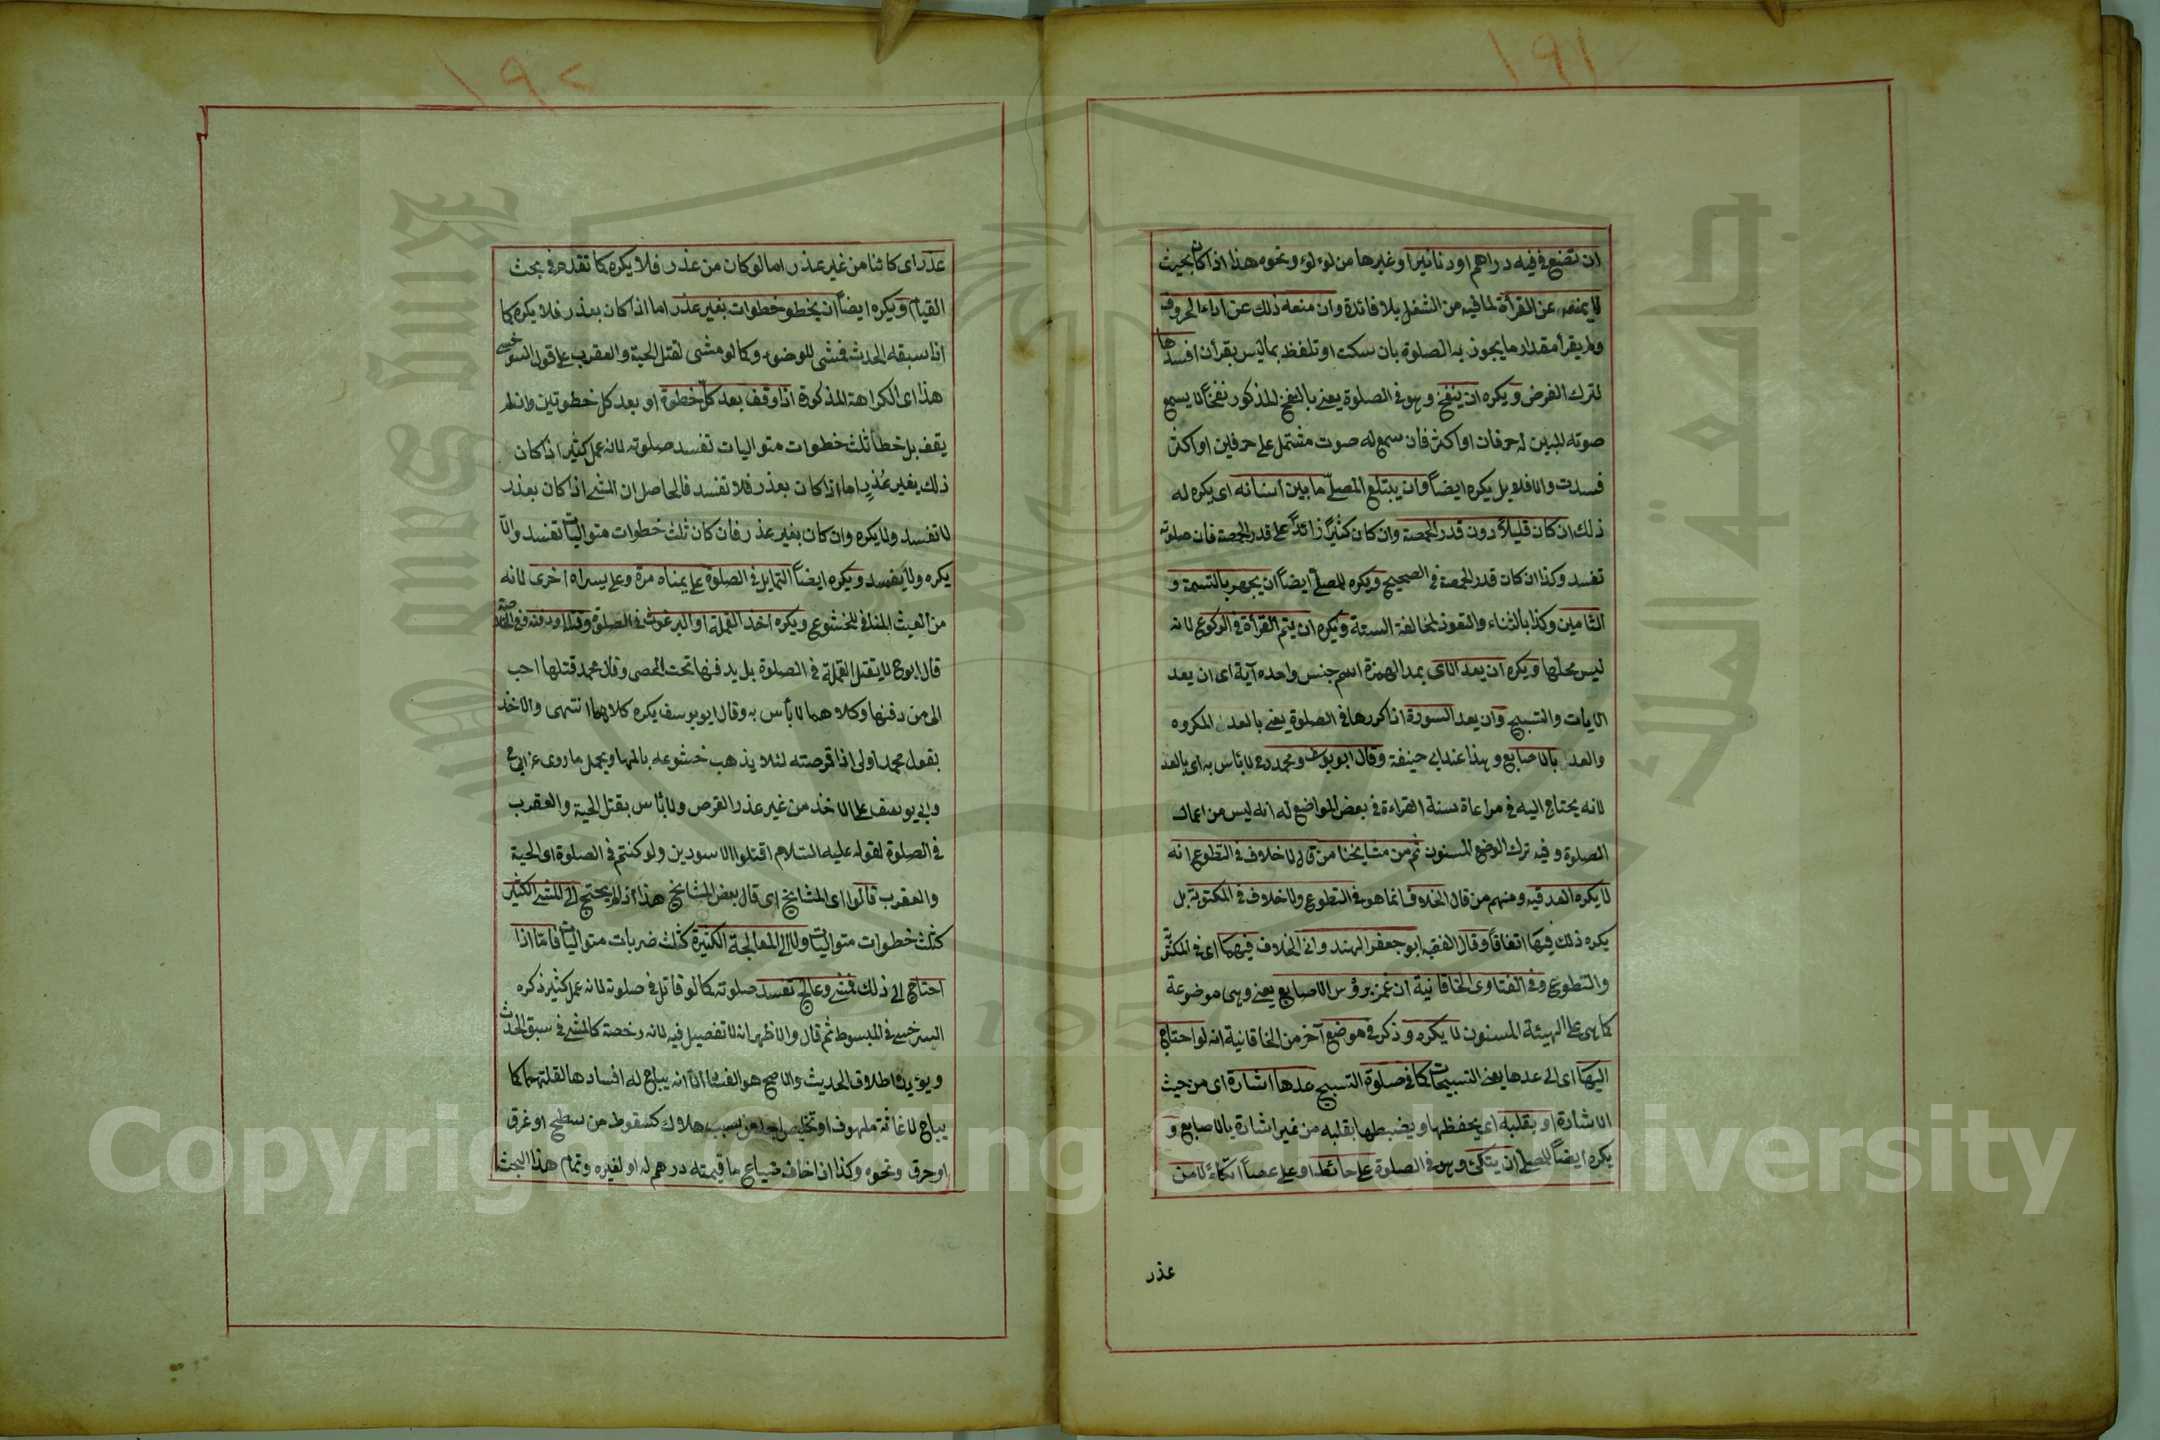 ١٩١
ان تضع في فيه دراهم او دنانير او غيرها من لوءلوء ونحوه هذا اذا كان بحيث
لا يمنعه عن القرأة لما فيه من الشغل بلا فائدة وان منعه ذلك عن اداء الحروف
ولم يقرأ مقدار ما يجوز به الصلوة بان سكت او تلفظ بما ليس بقرأن افسدها
لترك الفرض ويكره ان ينفخ وهو في الصلوة يعني بالنفخ المذكور نفخا لا يسمع
صوته للبين له حرفان او اكثر فان سمع له صوت مشتمل على حرفين او اكثر
فسدت والا فلا بل يكره ايضاً وان يبتلع المصلّي ما بين اسنانه اى يكره له
ذلك ان كان قليلاً دون قدر الحمصة وان كان كثيراً زائداً على قدر الحمصة فان صلوته
تفسد وكذا ان كان قدر الحمصة في الصحيح ويكره للمصلّي ايضاً ان يجهر بالتسمية و
التأمين وكذا بالثناء والتعوذ لمخالفة السنة ويكره ان يتم القرأة في الركوع لانه
ليس محلها ويكره ان يعد الاى بمد الهمزة اسم جنس واحده آية اى ان يعد
الايات والتسبيح وان يعد السورة اذا كررها في الصلوة يعني بالعد المكروه
والعد بالاصابع وهذا عند ابي حنيفة وقال ابو يوسف ومحمد رح لا بأس به اى بالعد
لانه يحتاج اليه في مراعاة سنة القراءة في بعض المواضع له انه ليس من اعمال
الصلوة وفيه ترك الوضع المسنون ثم من مشايخنا من قال لا خلاف في التطوع انه
لا يكره العد فيه ومنهم من قال الخلاف انما هو في التطوع ولا خلاف في المكتوبة بل
يكره ذلك فيها اتفاقاً وقال الفقيه ابو جعفر الهندوانى الخلاف فيهما اى في المكتوبة
والتطوع وفي الفتاوى الخاقانية ان غمز برؤس الاصابع يعني وهى موضوعة
كما هى على الهيئة المسنون لا يكره وذكر في موضع آخر من الخاقانية انه لو احتاج
اليها اى الى عدها يعني التسبيحات كما في صلوة التسبيح عدها اشارة اى من حيث
الاشارة او بقلبه اى يحفظها ويضبطها بقلبه من غير اشارة بالاصابع و
يكره ايضاً للمصلّي ان يتكئ وهو في الصلوة على حائط او على عصاً اتكاءً لا من
عذر
١٩٢
عذر اى كائنا من غير عذر اما لو كان من عذر فلا يكره كما تقدم في بحث
القيام ويكره ايضاً ان يخطو خطوات بغير عذر اما اذا كان بعذر فلا يكره كما
اذا سبقه الحدث فمشى للوضوء وكما لو مشى لقتل الحية والعقرب على قول السرخسى
هذا اى الكراهة المذكورة اذا وقف بعد كلّ خطوة او بعد كل خطوتين وان لم
يقف بل خطا ثلث خطوات متواليات تفسد صلوته لانه عمل كثير اذا كان
ذلك بغير عُذرٍ اما اذا كان بعذر فلا تفسد فالحاصل ان المشى اذا كان بعذر
لا تفسد ولا يكره وان كان بغير عذر فان كان ثلث خطوات متواليات تفسد والّا
يكره ولا يفسد ويكره ايضاً التمايل في الصلوة على يمناه مرة وعلى يسراه اخرى لانه
من العبث المنافي للخشوع ويكره اخذ القملة او البرغوث في الصلوة وقتله او دفنه
قال ابو ح لا يقتل القملة في الصلوة بل يدفنها تحت الحصى وقال محمد قتلها احب
الى من دفنها وكلاهما لا بأس به وقال ابو يوسف يكره كلاهما انتهى والاخذ
بقول محمد اولى اذا قرصته لئلا يذهب خشوعه بالمها ويحمل ما روى عن ابى ح
وابى يوسف على الاخذ من غير عذر القرص ولا بأس بقتل الحية والعقرب
في الصلوة لقوله عليه السلام اقتلوا الاسودين ولو كنتم في الصلوة اى الحية
والعقرب قالوا اى المشايخ اى قال بعض المشايخ هذا اذا لم يحتج الى المشى الكثير
كثلث خطوات متواليات ولا الى المعالجة الكثيرة كثلث ضربات متواليات فامّا اذا
احتاج الى ذلك فمشى وعالج تفسد صلوته كما لو قاتل في صلوته لانه عمل كثير ذكره
السرخسى في المبسوط ثم قال والاظهر انه لا تفصيل فيه لانه رخصة كالمشى في سبق الحدث
ويؤيده اطلاق الحديث والاصح هو الفساد الّا انه يباح له افسادها لقتلهما كما
يباح لاغاثة ملهوف او تخليص احد من سبب هلاك كسقوط من سطح او غرق
او حرق ونحوه وكذا اذا خاف ضياع ما قيمته درهم له او لغيره وتمام هذا البحث
King Saud University
جامعة الملك سعود
1957
Copyright © King Saud University